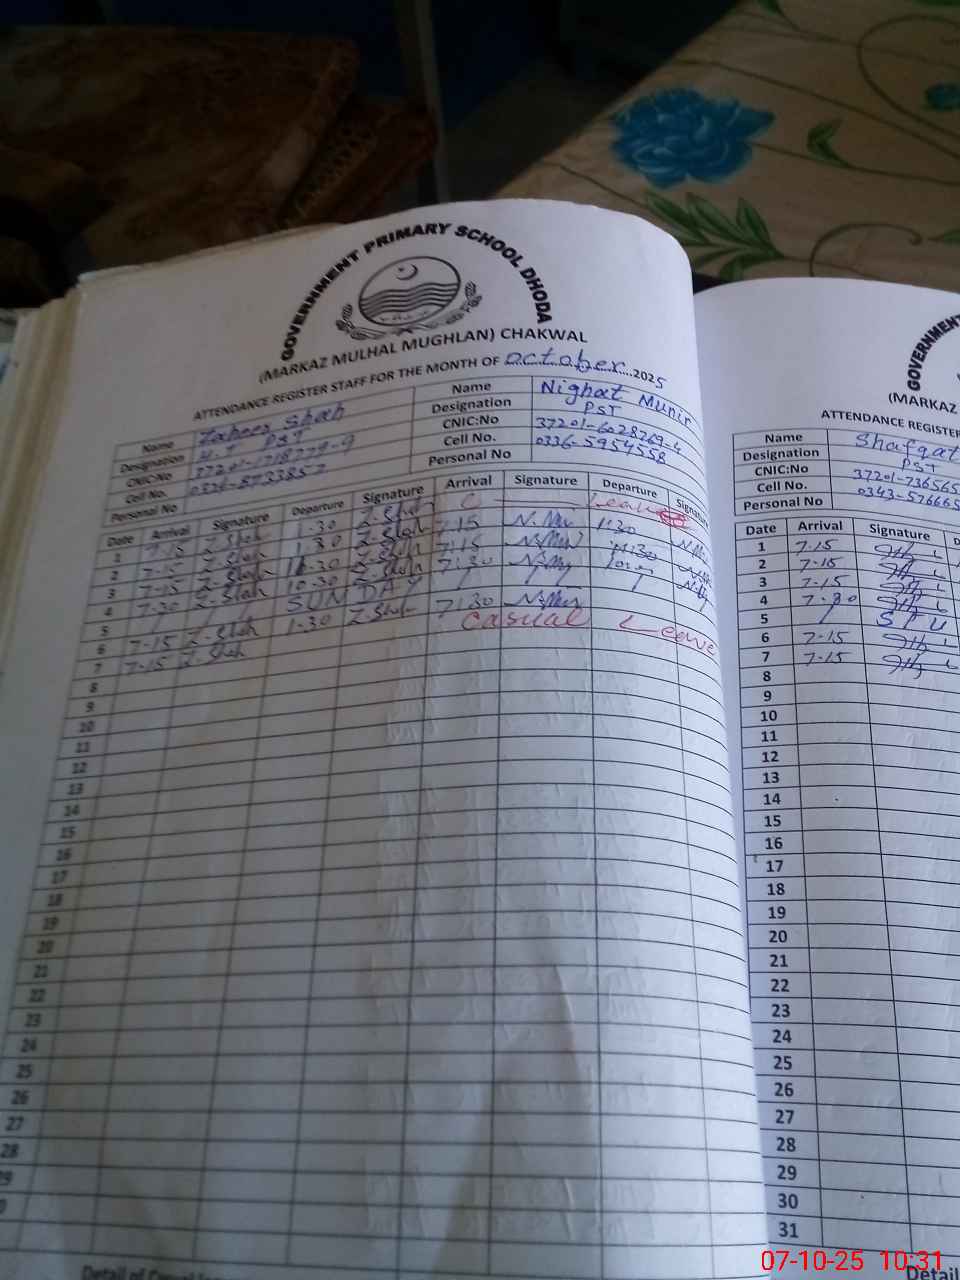 GOVERNMENT PRIMARY SCHOOL DHODA
(MARKAZ MULHAL MUGHLAN) CHAKWAL
ATTENDANCE REGISTER STAFF FOR THE MONTH OF October 2025
Name Zaheer Shah Name Nighat Munir
Designation PST Designation PST
CNIC:No CNIC:No 37201-6028269-4
Cell No. Cell No. 0336-5954558
Personal No Personal No
Date Arrival Signature Departure Signature Arrival Signature Departure Signature
1 7-15 Z-Shah 1-30 Z-Shah C Leave
2 7-15 Z-Shah 1-30 Z-Shah 7:15 1:30
3 7-15 Z-Shah Z-Shah 7:15
4 7-30 Z-Shah 10-30 Z-Shah 7:30
5 SUNDAY
6 7-15 Z-Shah 1-30 Z-Shah 7:30
7 7-15 Z-Shah Casual Leave
8
9
10
11
12
13
14
15
16
17
18
19
20
21
22
23
24
25
26
27
28
29
0
GOVERNMENT
(MARKAZ
ATTENDANCE REGISTER
Name Shafqat
Designation PST
CNIC:No 37201-736565
Cell No. 0343-576665
Personal No
Date Arrival Signature D
1 7-15
2 7-15
3 7-15
4 7-30
5 S U
6 7-15
7 7-15
8
9
10
11
12
13
14
15
16
17
18
19
20
21
22
23
24
25
26
27
28
29
30
31
Detail of
Detail
07-10-25 10:31